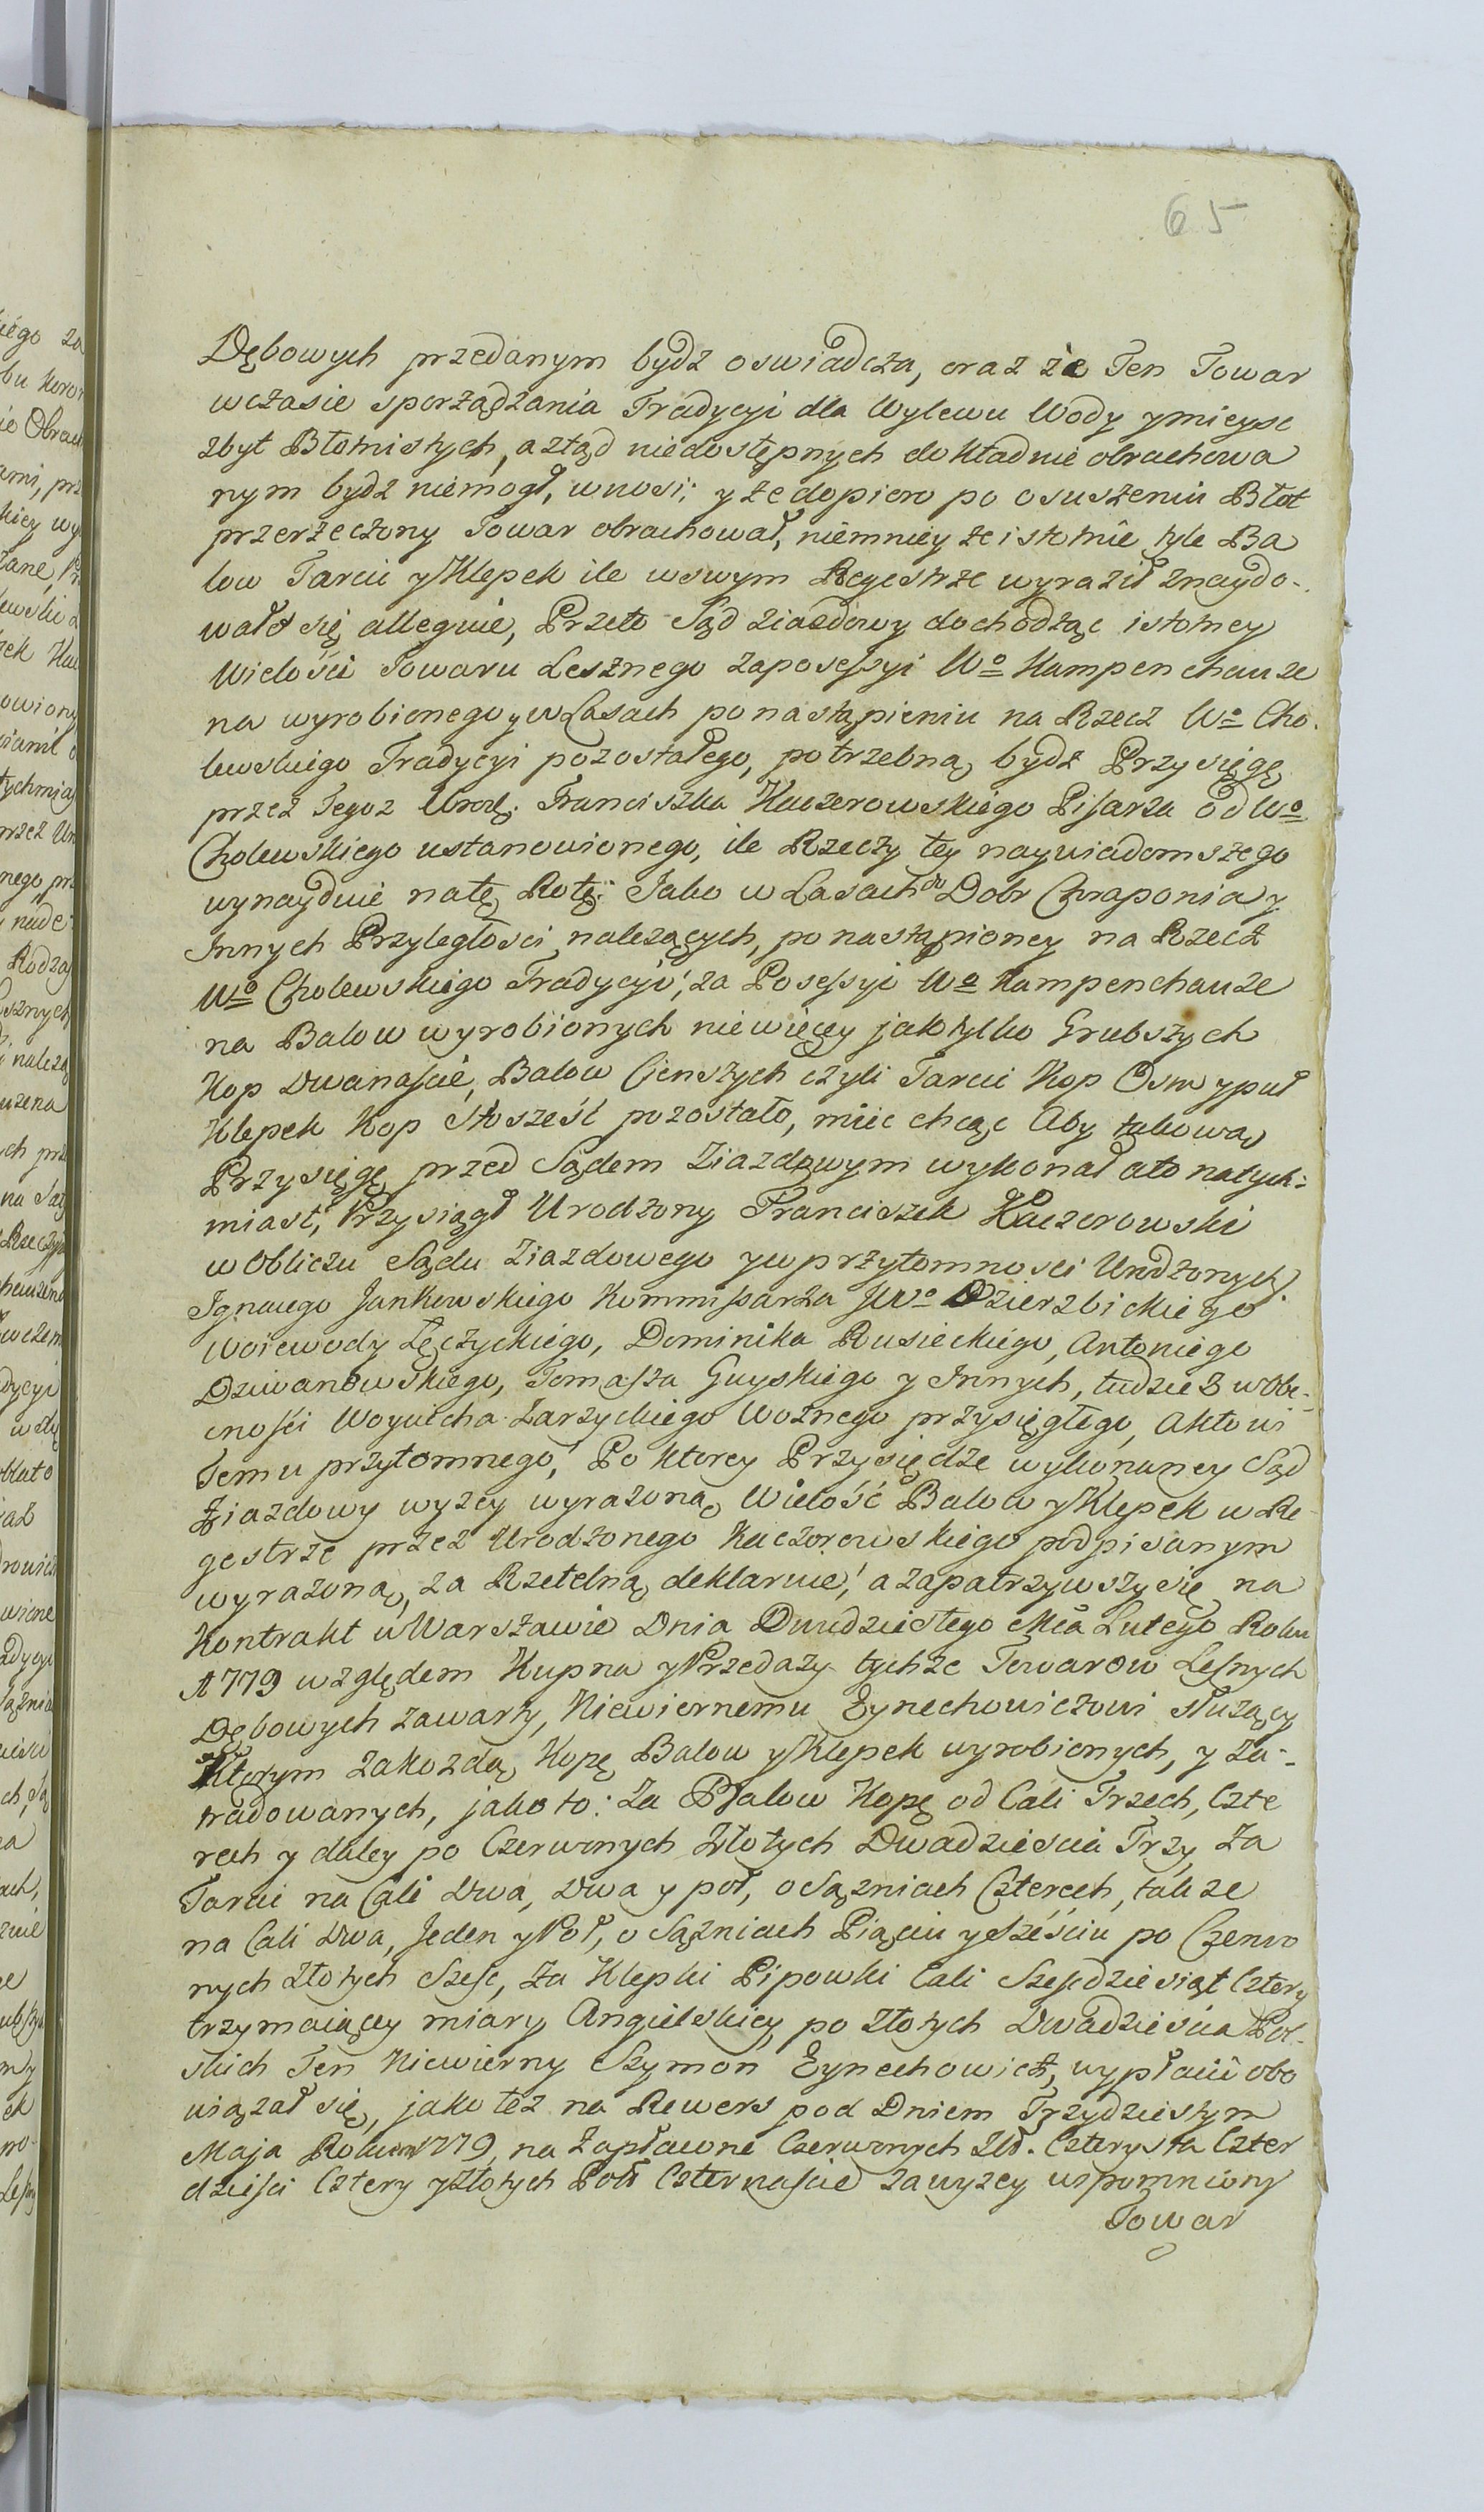 65
Dębowych przedanym bydz oswiadcza, oraz że Ten Towar
wczasie sporządzania Tradycyi dla Wylewu Wody ymieysc
zbyt Błotnistych, a ztąd niedostępnych dokładnie obrachowa
nym bydz niemógł, wnosi; y że dopiero po osuszeniu Błot
przerzeczony Towar obrachował, niemniey że istotnie tyle Ba
low Tarcic y Klepek ile wswym Regestrze wyraził znaydo-
wało się alleguie, Przeto Sąd ziazdowy dochodząc istotney
Wielości Towaru Lesznego zaposessyi Wo Kampenchauze
na wyrobionego y w Lasach po nastąpieniu na Rzecz Wo Cho-
lewskiego Tradycyi pozostałego, potrzebną bydz Przysięgę
przez Tegoz Urodz. Franciszka Kaczorowskiego Pisarza od Wo
Cholewskiego ustanowionego, ile Rzeczy tey naywiadomszego
wynayduie natę Rotę: Jako w Lasach do Dobr Chraponia y
Innych Przyległosci nalezących, po nastąpioney na Rzecz
Wo Cholewskiego Tradycyi, za Posessyi Wo Kampenchauze
na Balow wyrobionych niewięcy jak tylko Grubszych
Kop Dwanascie, Balow Cienszych czyli Tarcic Kop Osm y puł
Klepek Kop Stosześć pozostało, miec chcąc Aby takową
Przysięgę przed Sądem Ziazdowym wykonał ato natych-
miast, Przysiągł Urodzony Franciszek Kaczorowski
w Obliczu Sądu Ziazdowego yw przytomnosci Urodzonych
Ignacego Jankowskiego Kommissarza JWo Dzierzbickiego
Woiewody Łęczyckiego, Dominika Rusieckiego, Antoniego
Dziwanowskiego, Tomasza Guyskiego y Innych, tudziez w Obe-
cności Woyciecha Zarzyckiego Woznego przysięgłego, Aktowi
Temu przytomnego, Po ktorey Przysiędze wykonaney Sąd
Ziazdowy wyzey wyrazoną Wielość Balow y Klepek w Re-
gestrze przez Urodzonego Kaczorowskiego podpisanym
wyrazoną, za Rzetelną deklaruie, a zapatrzywszy się na
Kontrakt w Warszawie Dnia Dwudziestego Mca Lutego Roku
1779 względem Kupna y Przedazy tychze Towarow Lesnych
Dębowych zawarty, Niewiernemu Eynechowiczowi słuzący
Ktorym zakozdą Kopę Balow y Klepek wyrobionych, y Za-
tradowanych, jako to: Za Balow Kopę od Cali Trzech, Czte
rech y daley po Czerwonych Złotych Dwadziescia Trzy, Za
Tarcic na Cali Dwa, Dwa y poł, o Sązniach Czterech, takze
na Cali Dwa, Jeden y Poł, o Sązniach Pięciu y Sześciu po Czerwo
nych Złotych Szesc, Za Klepki Pipowki Cali Szescdziesiąt Cztery
trzymaiący miary Angielskiey po Złotych Dwadziescia Pol-
skich Ten Niewierny Szymon Eynechowicz, wypłacic obo
wiązał się, jako tez na Rewers pod Dniem Trzydziestym
Maja Roku 1779, na Zapławne Czerwonych Zło. Czterysta Czter
dziesci Cztery y Złotych Pols Czternascie za wyzey wspomniony
Towar